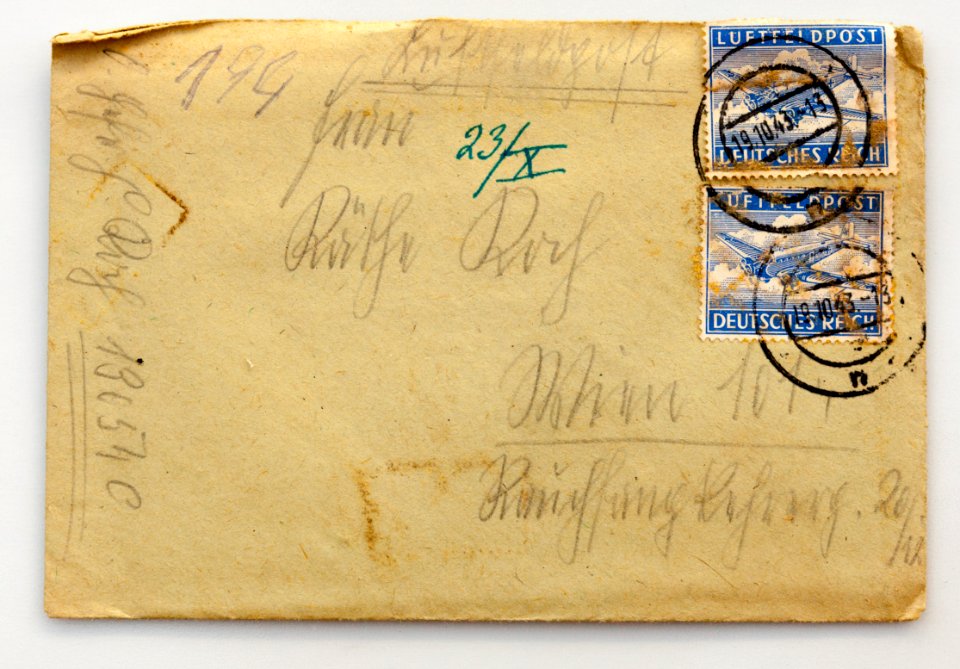 194
Luftfeldpost
Frau
23/X
Käthe Koch
Wien 101
Rauchfangkehrerg. 20/
LUFTFELDPOST
DEUTSCHES REICH
19.10.43.-13
LUFTFELDPOST
DEUTSCHES REICH
19.10.43.-13
n